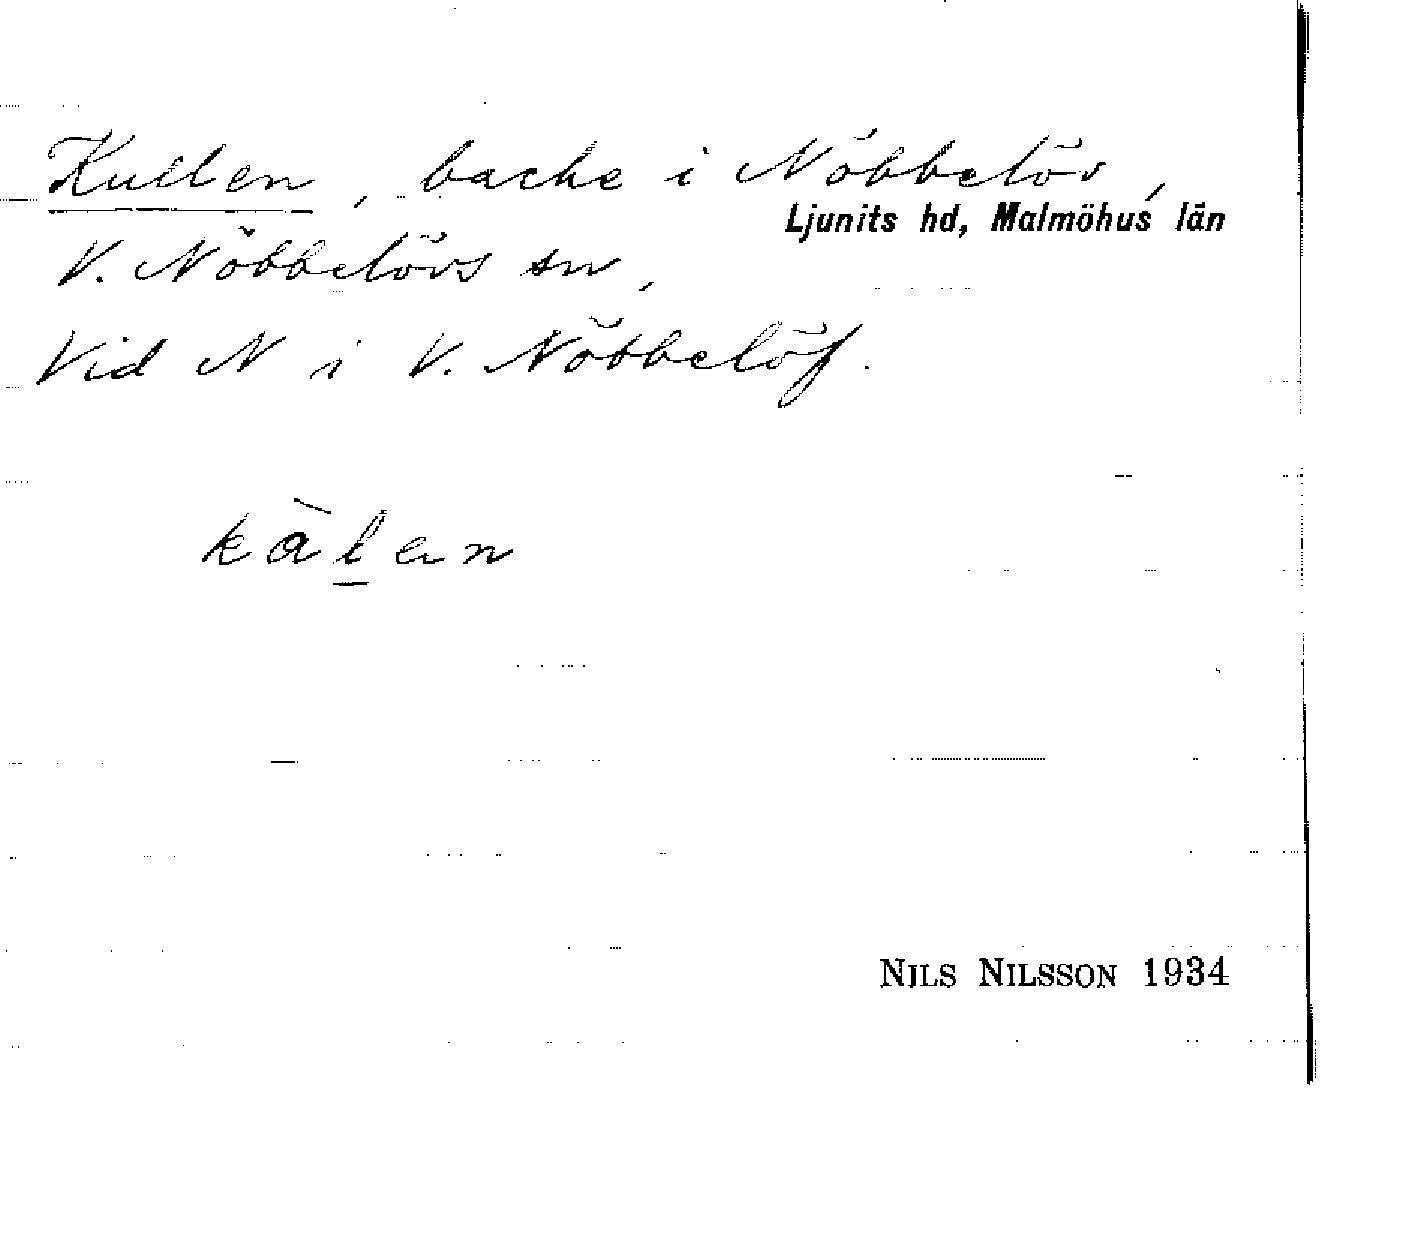 Kullen, backe i Nöbbelöv,
Ljunits hd, Malmöhus län
V. Nöbbelövs sn,
Vid N i V. Nöbbelöf.
kàl̲ən
NILS NILSSON 1934